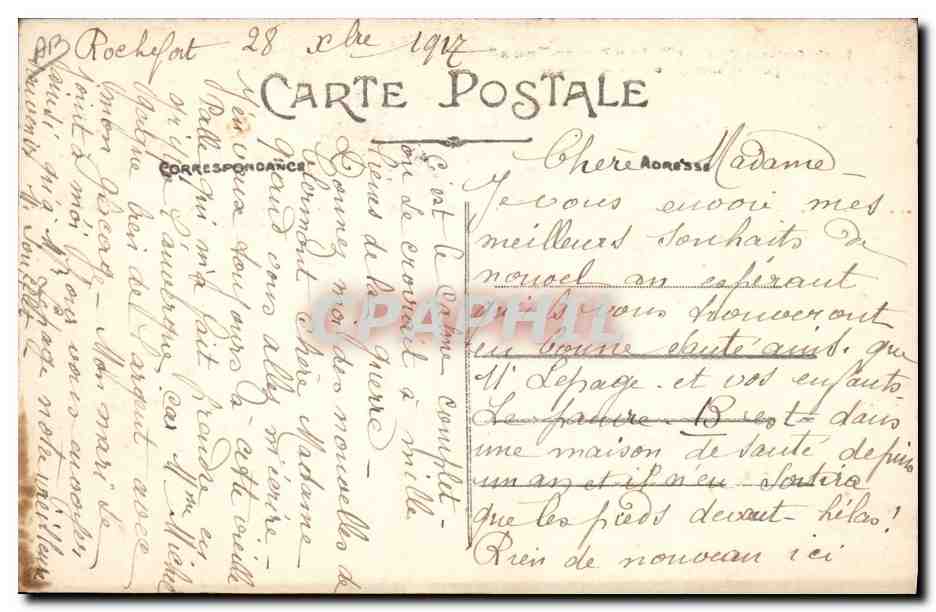 AB
Rochefort 28 xbre 1917
CARTE POSTALE
CORRESPONDANCE
ADRESSE
Chère Madame
Je vous envoie mes
meilleurs souhaits de
nouoel en espérant
qu'ils vous trouveront
en bonne santé ainsi que
Mr Lepage et vos enfants.
Le pauvre B est dans
une maison de santé depuis
un an et il n'en sortira
que les pieds devant hélas!
Rien de nouveau ici
C'est le calme complet
on se croirait à mille
lieus de la guerre
Donnez moi des nouvelles de
Clermont chère Madame
quand vous allez m'écrire
J'en veux toujours à cette vieille
Palle qui m'a fait prendre en
grippe l'auvergne car Mme Michel
gagne bien de l'argent avec
mon Mon mari se
joint à moi pour vous
ainsi qu'à Mr Lepage notre meilleur
souvenir
CPAPHIL